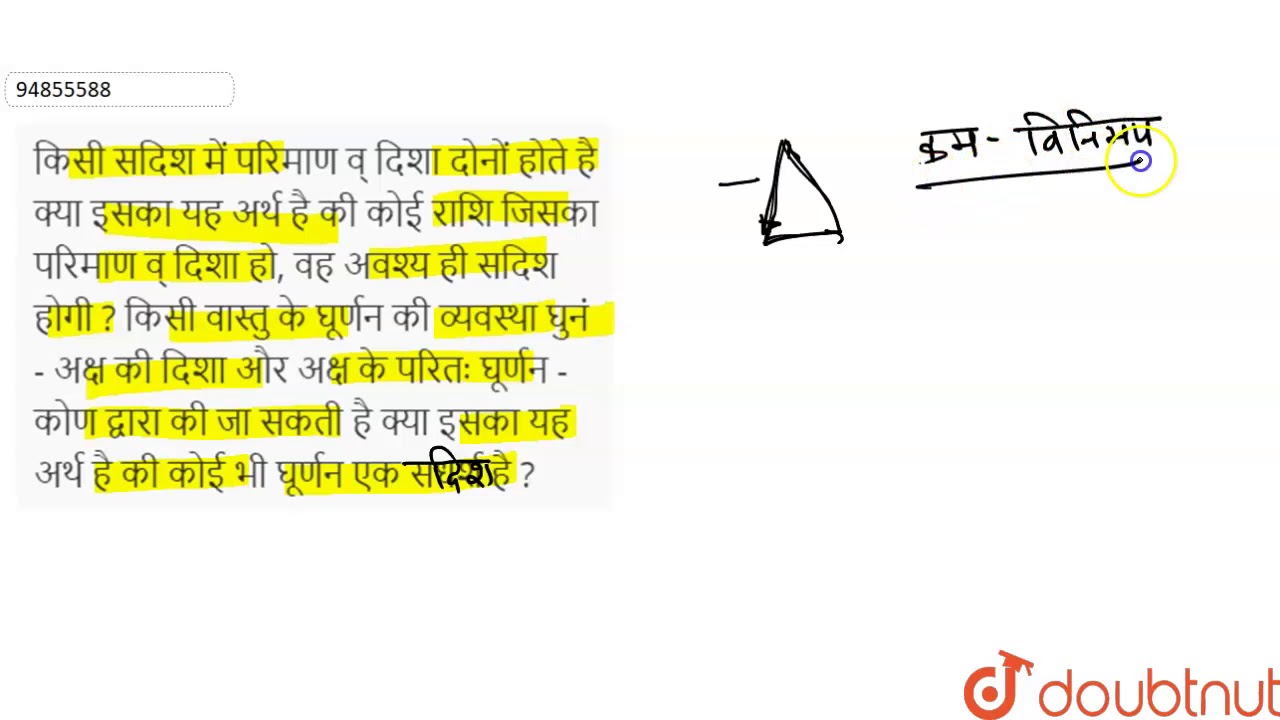 94855588
क्रम - विनिमय
किसी सदिश में परिमाण व् दिशा दोनों होते है
क्या इसका यह अर्थ है की कोई राशि जिसका
परिमाण व् दिशा हो, वह अवश्य ही सदिश
होगी ? किसी वास्तु के घूर्णन की व्यवस्था घुनं
- अक्ष की दिशा और अक्ष के परितः घूर्णन -
कोण द्वारा की जा सकती है क्या इसका यह
अर्थ है की कोई भी घूर्णन एक सदिश है ?
doubtnut